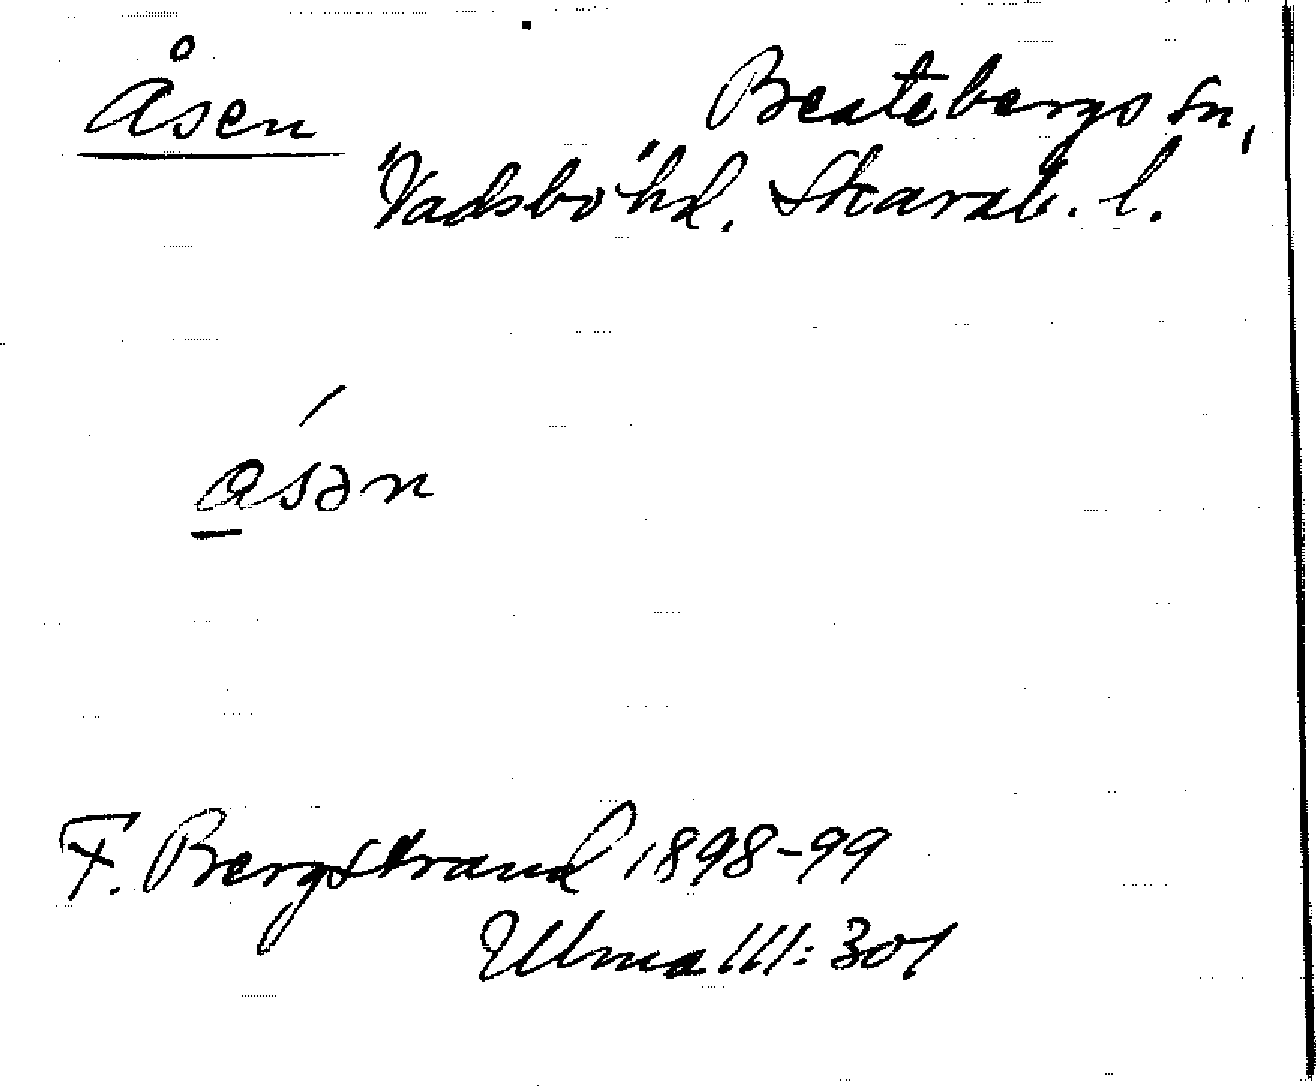 Åsen Beatebergs sn,
"Vadsbo" hd. Skarab. l.
ásən
F. Bergstrand 1898-99
Ulma 111:301